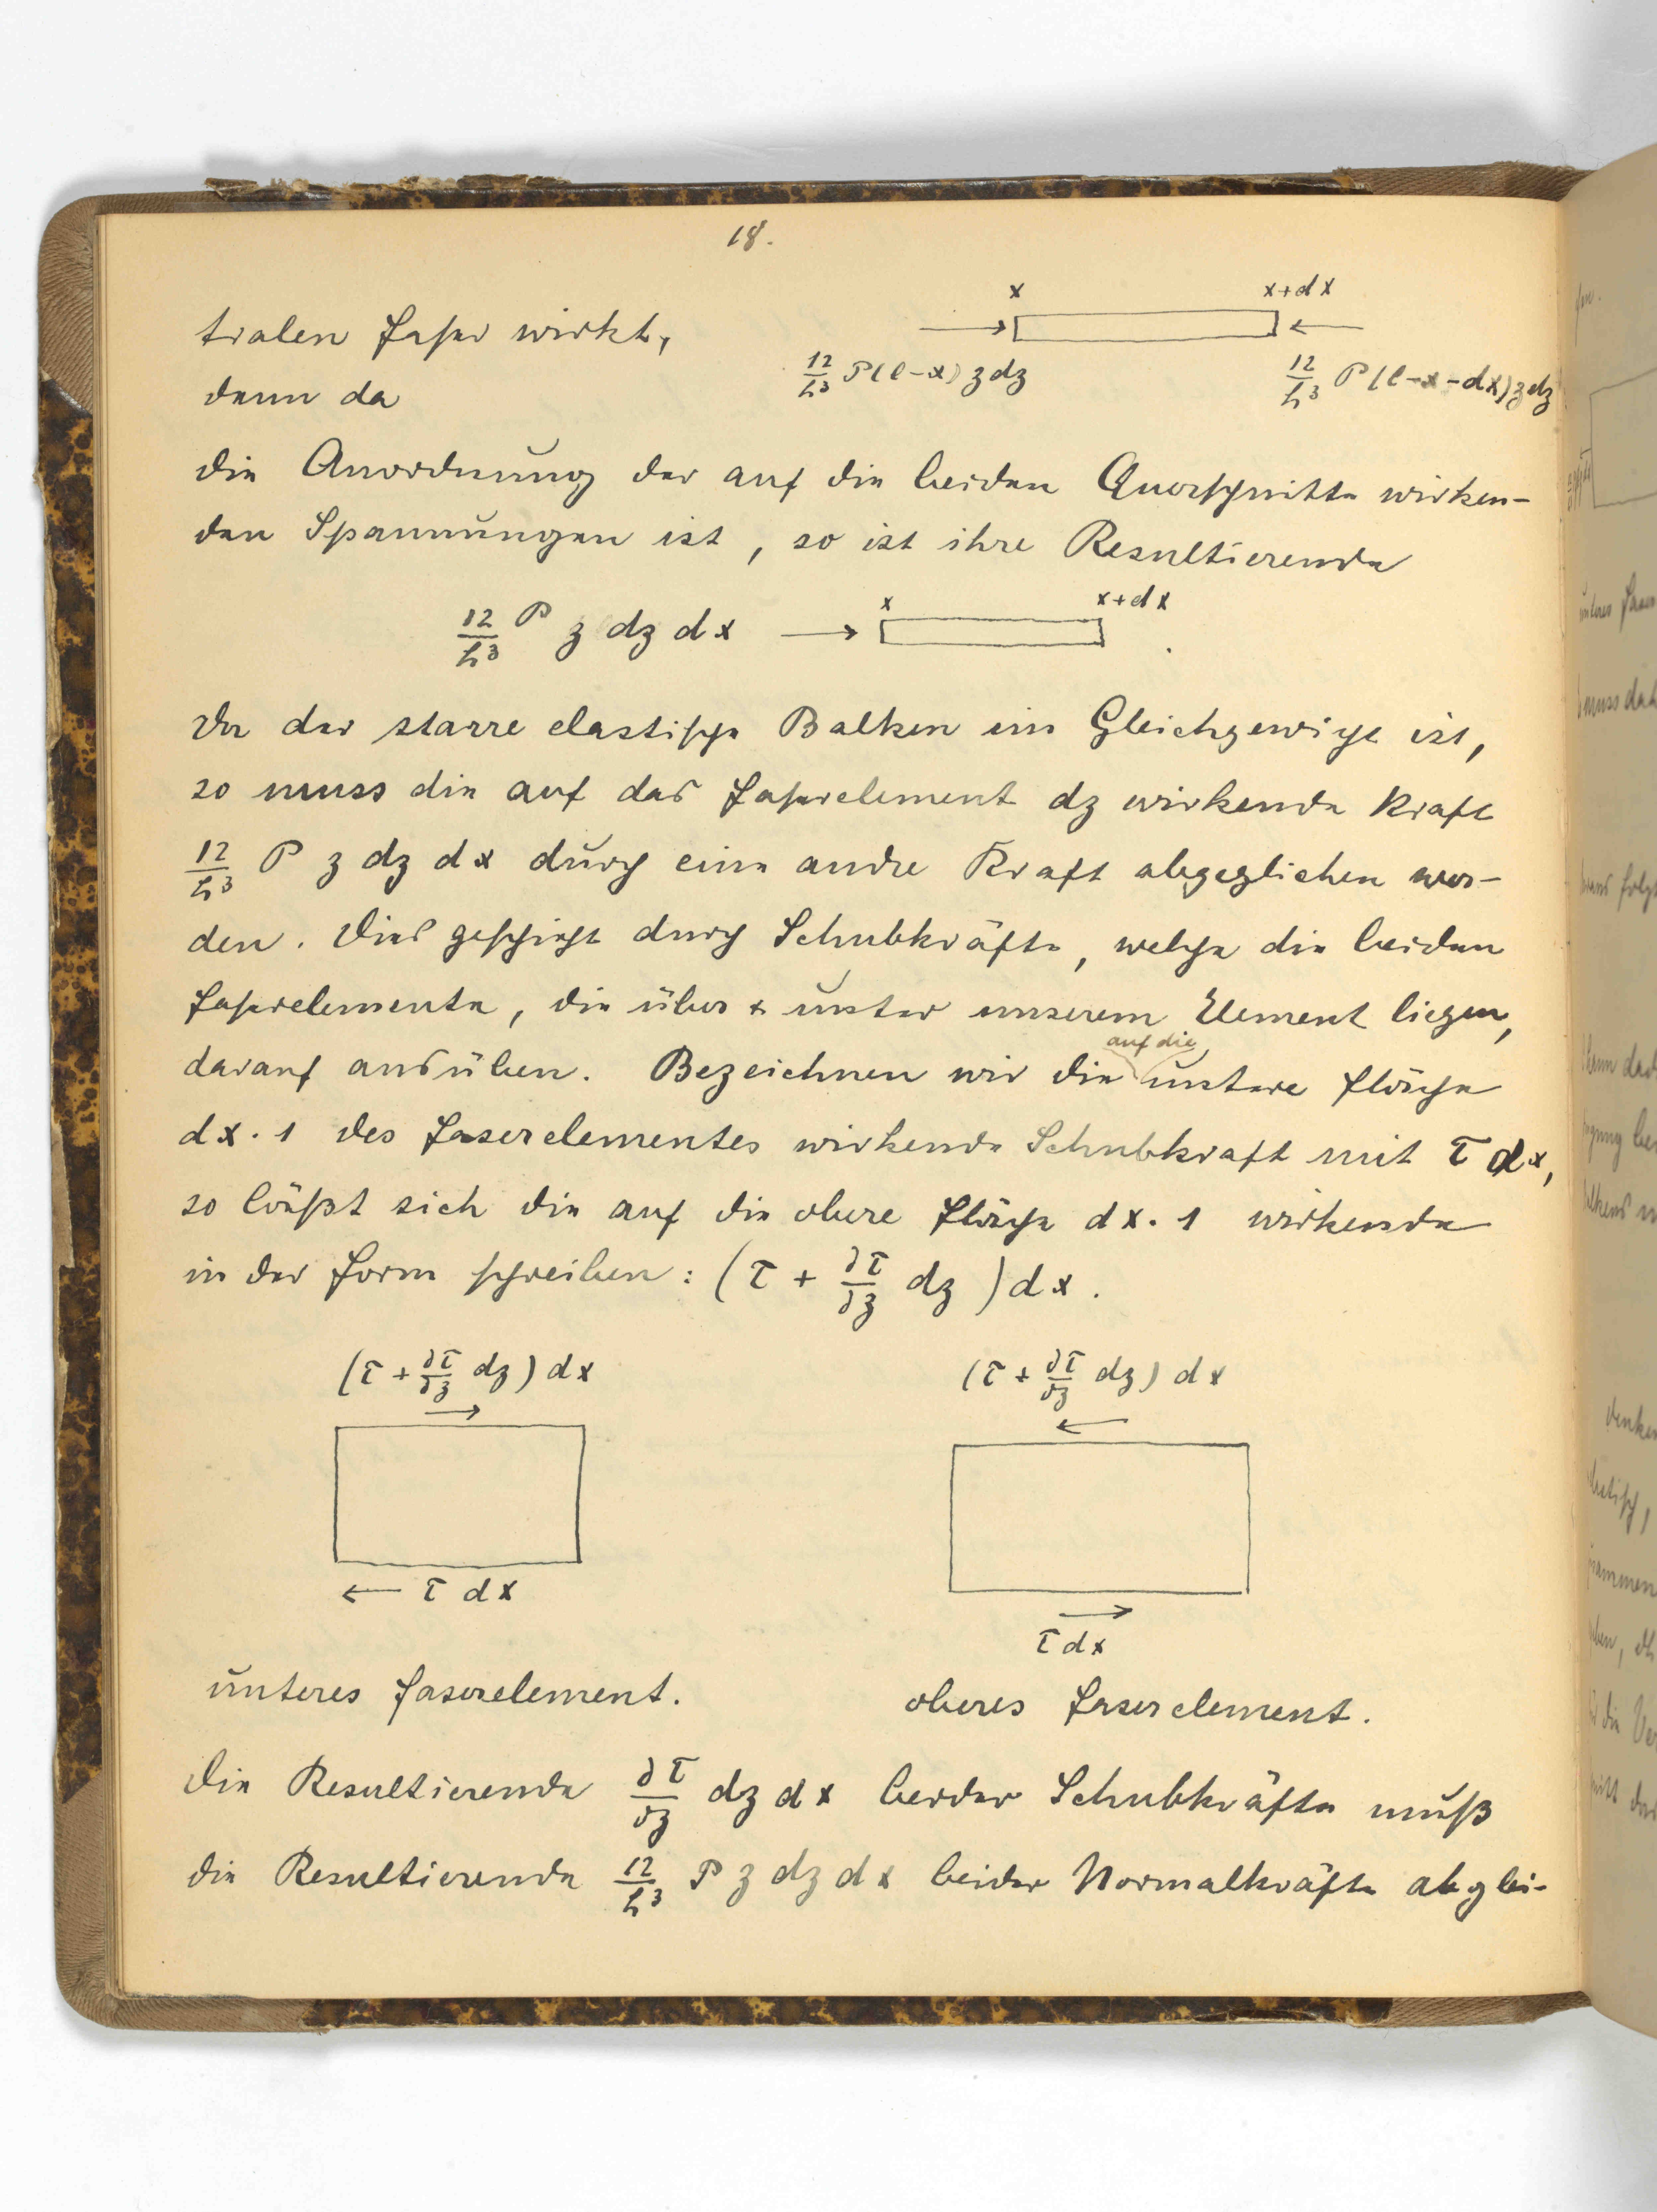 18.
x x+dx
tralen Faser wirkt,
12/h³ P(l-x) z dz 12/h³ P(l-x-dx) z dz
denn da
die Anordnung der auf die beiden Querschnitte wirken-
den Spannungen ist, so ist ihre Resultierende
12/h³ P z dz dx → x x+dx
Da der starre elastische Balken im Gleichgewicht ist,
so muss die auf das Faserelement dz wirkende Kraft
12/h³ P z dz dx durch eine andre Kraft abgeglichen wer-
den. Dies geschieht durch Schubkräfte, welche die beiden
Faserelemente, die über & unter unserem Element liegen,
darauf ausüben. Bezeichnen wir die auf die untere Fläche
dx·1 des Faserelementes wirkende Schubkraft mit τ dx,
so läßt sich die auf die obere Fläche dx·1 wirkende
in der Form schreiben: (τ + ∂τ/∂z dz) dx.
(τ + ∂τ/∂z dz) dx (τ + ∂τ/∂z dz) dx
→ ←
← τ dx → τ dx
unteres Faserelement. oberes Faserelement.
Die Resultierende ∂τ/∂z dz dx beider Schubkräfte muß
die Resultierende 12/h³ P z dz dx beider Normalkräfte abglei-